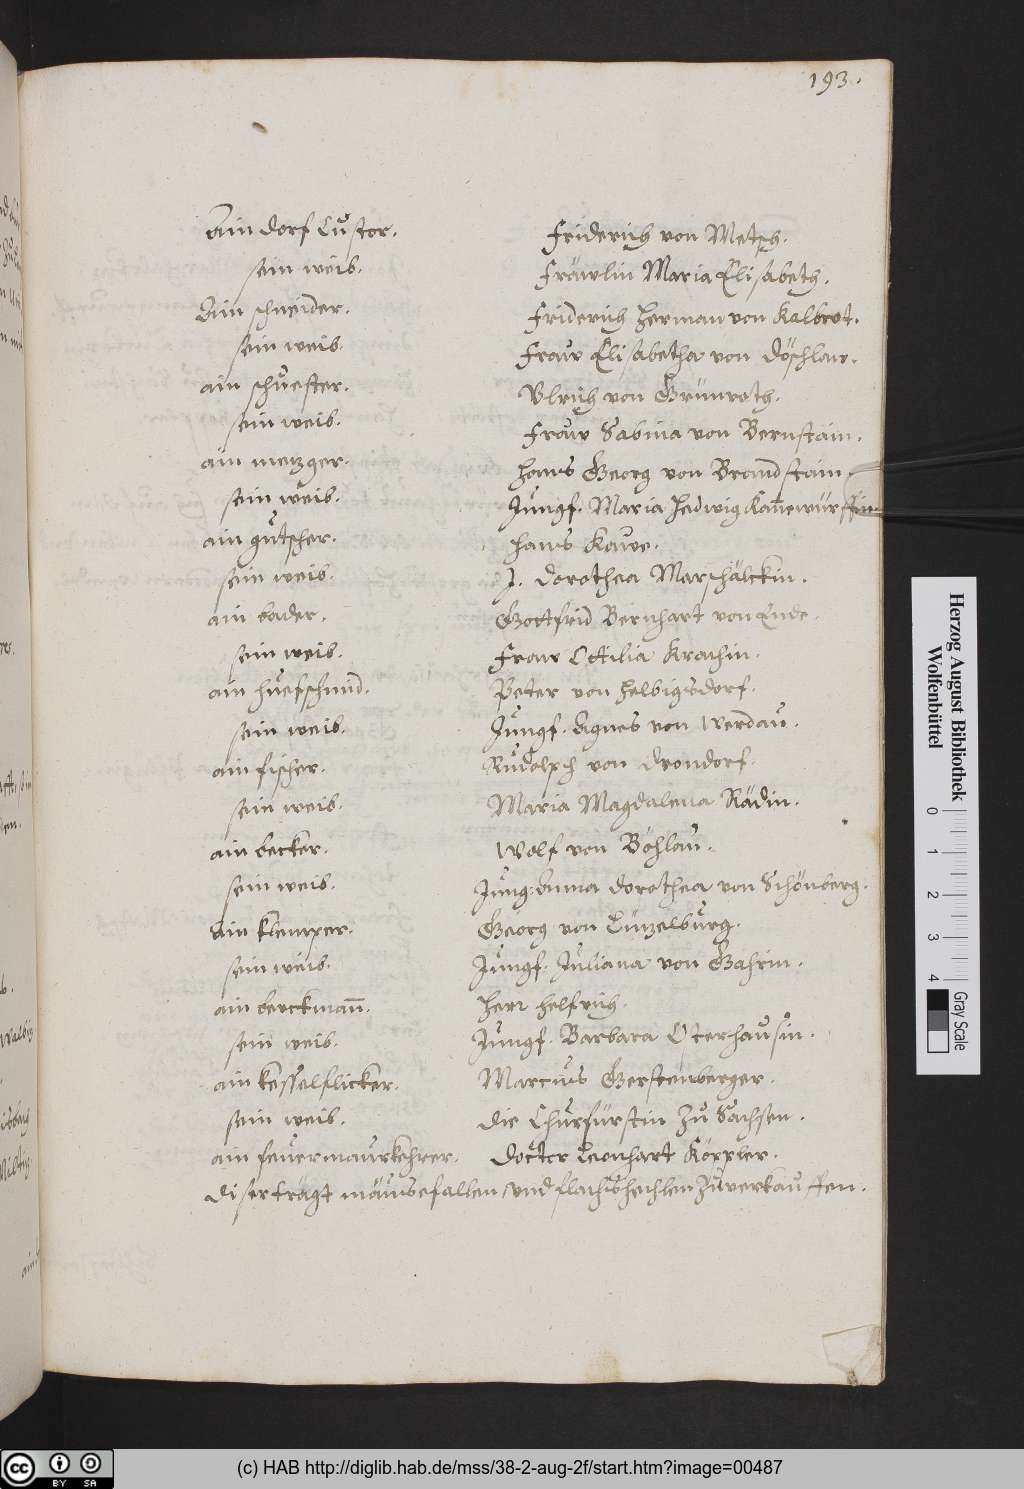 193.
Ain dorf Custor. Friderich von Metsch.
sein weib. Fräwlin Maria Elisabeth.
Ain schneider. Friderich Herman von Kalbrot.
sein weib. Fraw Elisabetha von Döschlaw.
ain schuester. Vlrich von Grünroth.
sein weib. Fraw Sabina von Bernstain.
ain metzger. Hanns Georg von Brandstain.
sein weib. Jungf. Maria Hedwig Kan̄ewürffin.
ain gutscher. Hanns Kawe.
sein weib. J. Dorothea Marschälckin.
ain bader. Gottfrid Bernhart von Ende.
sein weib. Fraw Ottilia Krachin.
ain huefschmid. Peter von Helbigsdorf.
sein weib. Jungf. Agnes von Werdau.
ain fischer. Rudolph von Drondorf.
sein weib. Maria Magdalena Rädin.
ain becker. Wolf von Böhlau.
sein weib. Jung: Anna Dorothea von Schönberg.
Ain klemper. Georg von Lützelburg.
sein weib. Jungf. Juliana von Gahrin.
ain berckman̄. Herr Helfrich.
sein weib. Jungf. Barbara Osterhausin.
ain kesselflicker. Marcus Gerstenberger.
sein weib. Die Churfürstin zu Sachsen.
ain feuermaurkehrer. Doctor Leonhart Köppler.
Diser tragt mäusefallen, und flachshechlen zuverkauffen.
Herzog August Bibliothek
Wolfenbüttel
0 1 2 3 4
Gray Scale
cc BY SA
(c) HAB http://diglib.hab.de/mss/38-2-aug-2f/start.htm?image=00487